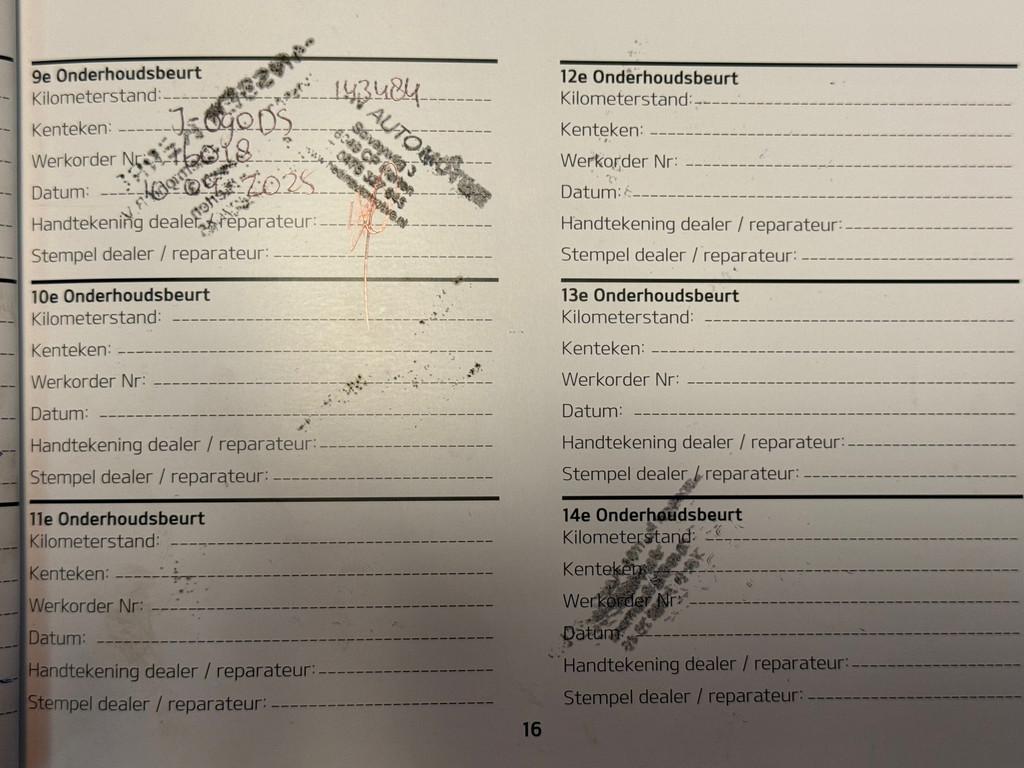 9e Onderhoudsbeurt
Kilometerstand: 143484
Kenteken:
Werkorder Nr: 16018
Datum: 2025
Handtekening dealer / reparateur:
Stempel dealer / reparateur:
10e Onderhoudsbeurt
Kilometerstand:
Kenteken:
Werkorder Nr:
Datum:
Handtekening dealer / reparateur:
Stempel dealer / reparateur:
11e Onderhoudsbeurt
Kilometerstand:
Kenteken:
Werkorder Nr:
Datum:
Handtekening dealer / reparateur:
Stempel dealer / reparateur:
12e Onderhoudsbeurt
Kilometerstand:
Kenteken:
Werkorder Nr:
Datum:
Handtekening dealer / reparateur:
Stempel dealer / reparateur:
13e Onderhoudsbeurt
Kilometerstand:
Kenteken:
Werkorder Nr:
Datum:
Handtekening dealer / reparateur:
Stempel dealer / reparateur:
14e Onderhoudsbeurt
Kilometerstand:
Kenteken:
Werkorder Nr:
Datum:
Handtekening dealer / reparateur:
Stempel dealer / reparateur:
16